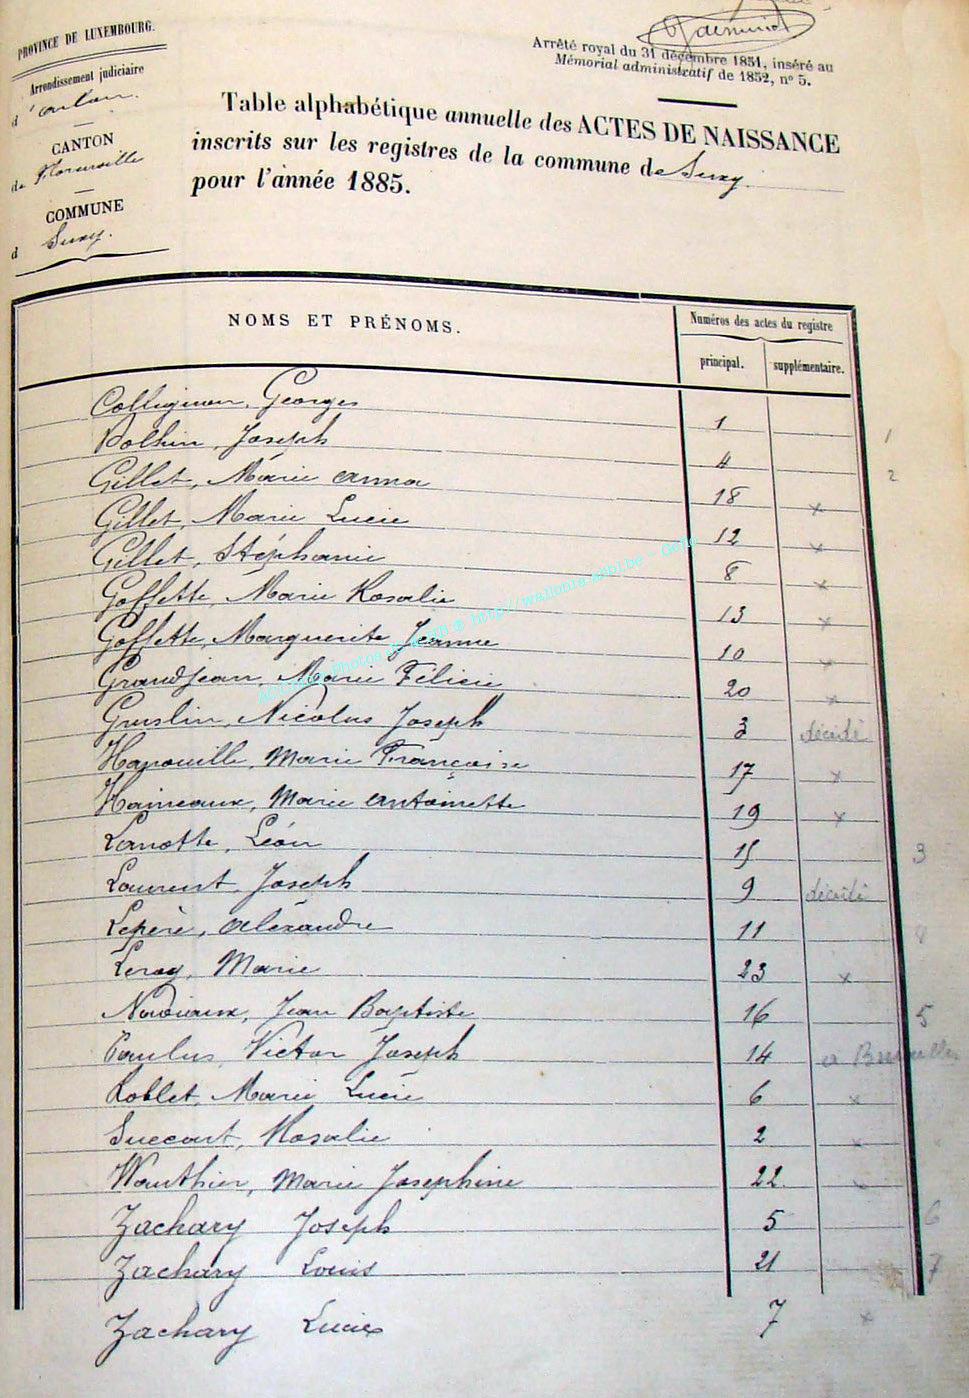 PROVINCE DE LUXEMBOURG.
Arrondissement judiciaire
d'Arlon.
CANTON
de Florenville
COMMUNE
d Suxy.
Arrêté royal du 31 décembre 1851, inséré au
Mémorial administratif de 1852, n° 5.
Table alphabétique annuelle des ACTES DE NAISSANCE
inscrits sur les registres de la commune de Suxy.
pour l'année 1885.
NOMS ET PRÉNOMS.
Numéros des actes du registre
principal. supplémentaire.
Collignon, Georges 1
Joseph 4 1
Gillet, Marie Anna 18 x 2
Gillet, Marie Lucie 12 x
Gillet, Stéphanie 8 x
Goffette, Marie Rosalie 13 x
Goffette, Marguerite Jeanne 10 x
Grandjean, Marie Félicie 20 x
Nicolas Joseph 3 décédé
Marie Françoise 17 x
Haineaux, Marie Antoinette 19 x
Lanotte, Léon 15 3
Laurent, Joseph 9 décédé
Lepère, Alexandre 11
Leroy, Marie 23 x
Jean Baptiste 16 5
Paulus, Victor Joseph 14 a Bruxelles
Roblet, Marie Lucie 6 x
Succart, Rosalie 2 x
Wauthier, Marie Joséphine 22. x
Zachary Joseph 5 6
Zachary Louis 21 7
Zachary Lucie 7 x